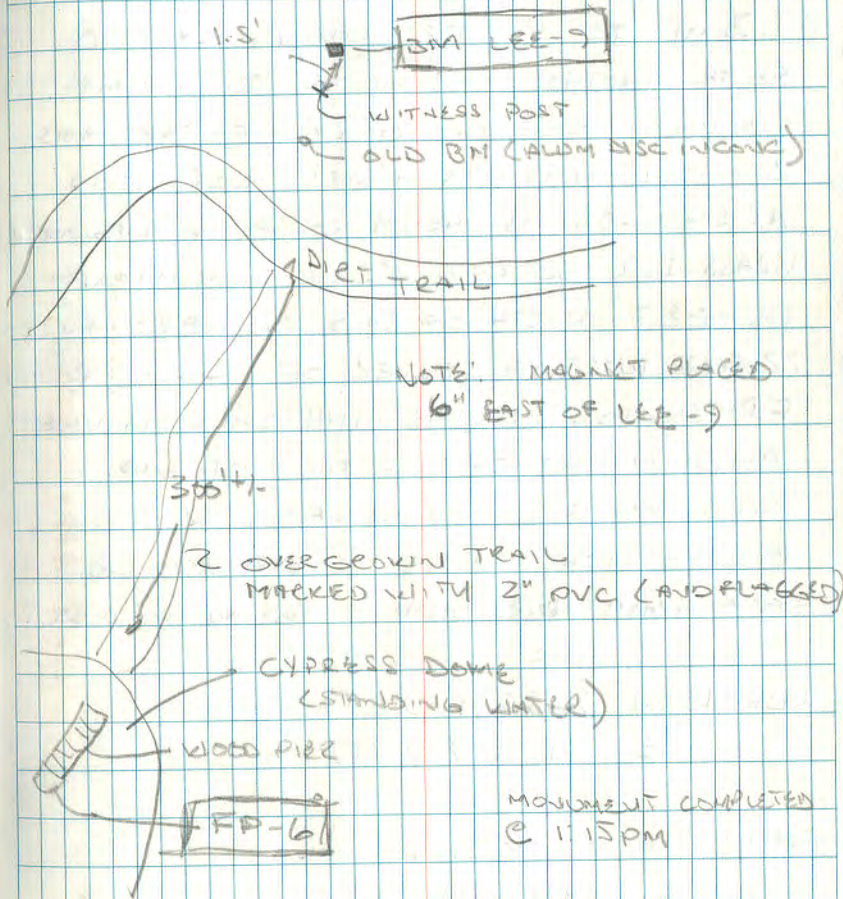 1.5'
BM LEE-9
WITNESS POST
OLD BM (ALUM DISC IN CONC)
DIRT TRAIL
NOTE: MAGNET PLACED
6" EAST OF LEE-9
300'+/-
OVERGROWN TRAIL
MARKED WITH 2" PVC (AND FLAGGED)
CYPRESS DOME
(STANDING WATER)
WOOD PIER
FP-6
MONUMENT COMPLETED
@ 1:15PM